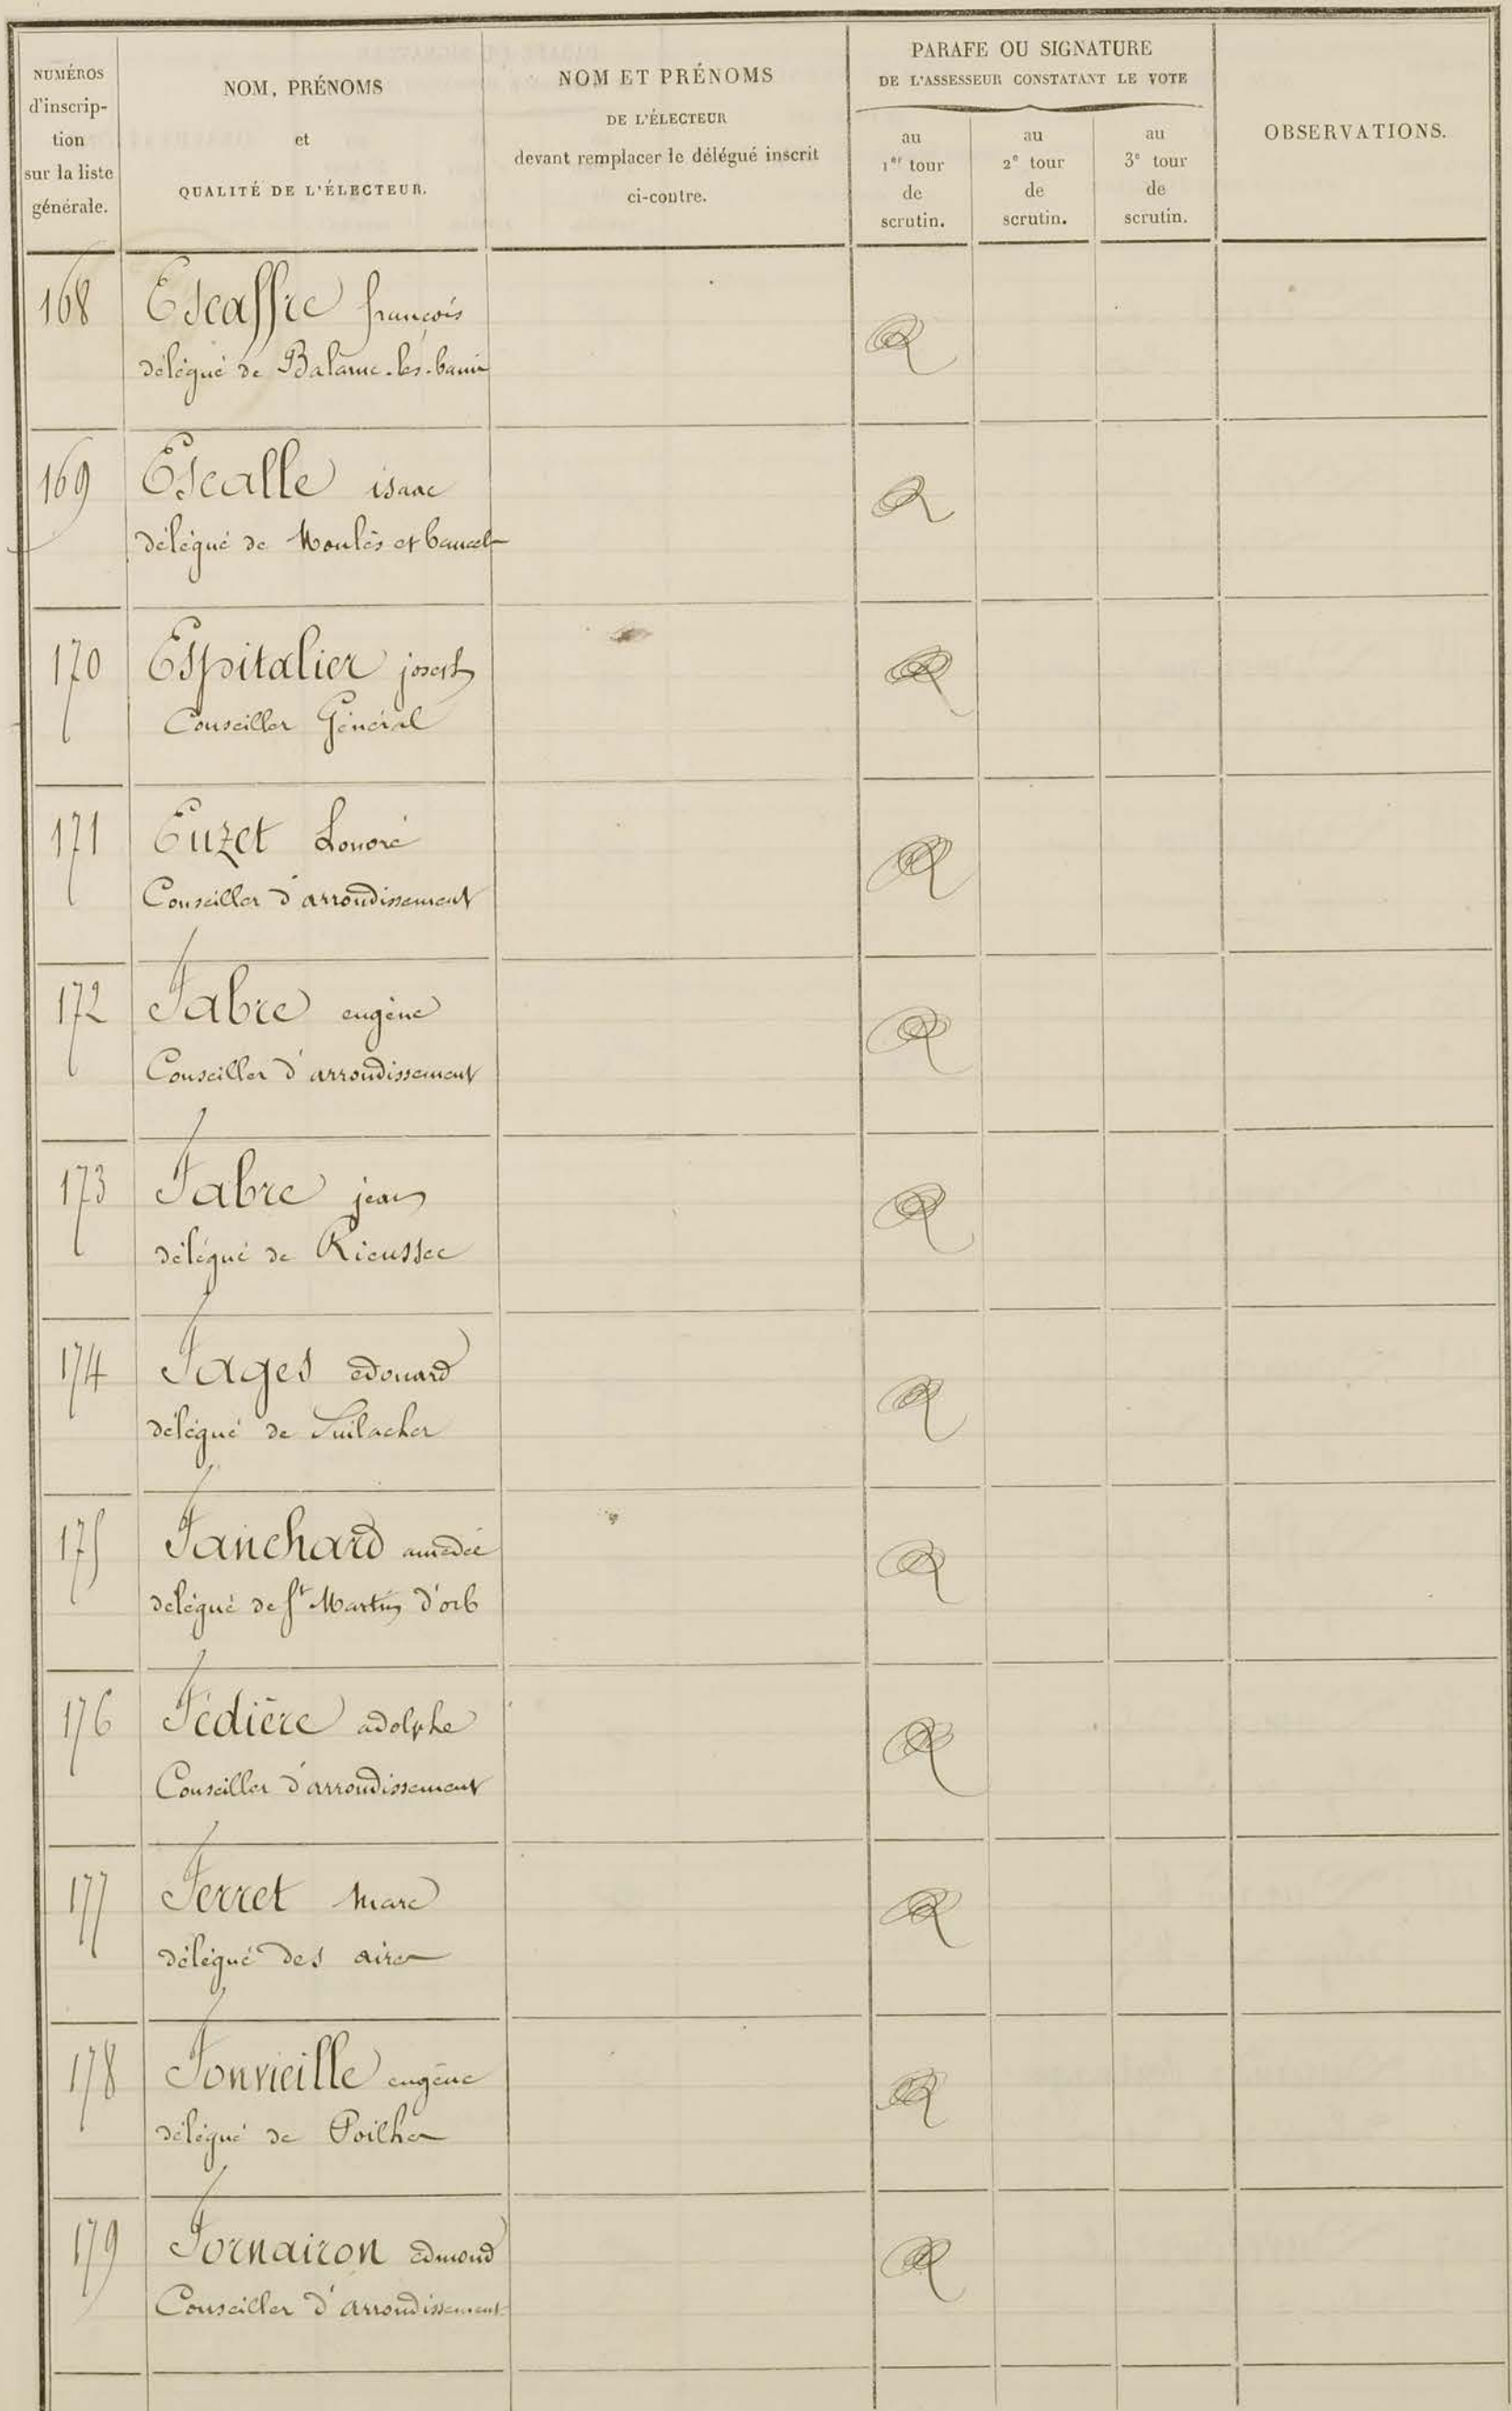 NUMÉROS
d'inscrip-
tion
sur la liste
générale.
NOM, PRÉNOMS
et
QUALITÉ DE L'ÉLECTEUR.
NOM ET PRÉNOMS
DE L'ÉLECTEUR
devant remplacer le délégué inscrit
ci-contre.
PARAFE OU SIGNATURE
DE L'ASSESSEUR CONSTATANT LE VOTE
au
1er tour
de
scrutin.
au
2e tour
de
scrutin.
au
3e tour
de
scrutin.
OBSERVATIONS.
168 Escaffre françois
délégué de Balaruc-les-bains
169 Escalle isaac
délégué de Moulès et baucels
170 Espitalier joseph
Conseiller Général
171 Euzet honoré
Conseiller d'arrondissement
172 Fabre eugène
Conseiller d'arrondissement
173 Fabre jean
délégué de Rieussec
174 Fages edouard
délégué de
175 Fanchard amédée
délégué de St Martin d'orb
176 Fédière adolphe
Conseiller d'arrondissement
177 Ferret Marc
délégué des aires
178 Fonvieille eugène
délégué de Poilhes
179 Fornairon Edmond
Conseiller d'arrondissement